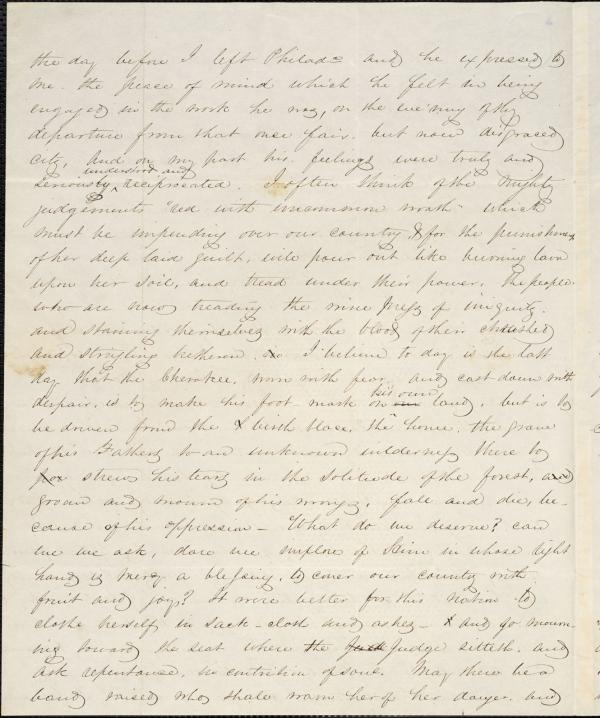 the day before I left Philada and he expressed to
me the peace of mind which he felt in being
engaged in the work he was, on the eve'ning of his
departure from that once fair, but now disgraced
city, and on my part his feelings were truly and
understood and
seriously reciprocated. I often think of the mighty
judgements "red with uncommon wrath" which
must be impending over our country, & for the punishment
of her deep laid guilt, will pour out like burning lava
upon her soil, and tread under their power, the people
who are now treading the wine press of iniquity,
and staining themselves with the blood of their crushed
and strugling bretheren. I believe to day is the last
day that the Cherokee, worn with fear, and cast down with
his own
despair, is to make his foot-mark on land, but is to
be driven from the birth place, the home, the grave
of his Fathers to an unknown wilderness there to
strew his tears in the solitude of the forest, and
groan and mourn of his wrongs, fall and die, be-
cause of his oppression - What do we deserve? can
we we ask, dare we implore of Him in whose right
hand is mercy a blessing, to cover our country with
fruit and joy? It were better for this nation to
clothe herself in sack-cloth and ashes - and go mourn-
ing toward the seat where the Judge sitteth, and
ask repentance, in contrition of soul. May there be a
band raised who shall warn her of her danger, and